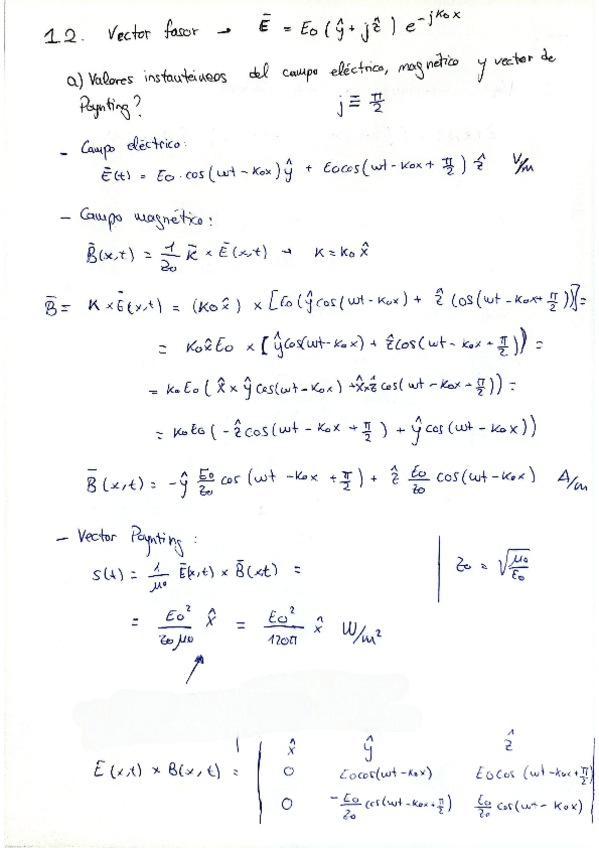 1.2. Vector fasor → Ē = E₀ (ŷ + jẑ) e^(-jk₀x)
a) Valores instantáneos del campo eléctrico, magnético y vector de
Poynting? j ≡ π/2
- Campo eléctrico:
Ē(t) = E₀·cos(ωt - k₀x)ŷ + E₀cos(ωt - k₀x + π/2) ẑ V/m
- Campo magnético:
B̄(x,t) = 1/Z₀ k̄ × Ē(x,t) → k = k₀ x̂
B̄ = k × Ē(x,t) = (k₀x̂) × [E₀(ŷcos(ωt - k₀x) + ẑ cos(ωt - k₀x + π/2))] =
= k₀x̂E₀ × [ŷcos(ωt - k₀x) + ẑcos(ωt - k₀x + π/2)) =
= k₀E₀ (x̂ × ŷ cos(ωt - k₀x) + x̂×ẑ cos(ωt - k₀x + π/2)) =
= k₀E₀ (-ẑcos(ωt - k₀x + π/2) + ŷcos(ωt - k₀x))
B̄(x,t) = -ŷ E₀/Z₀ cos(ωt - k₀x + π/2) + ẑ E₀/Z₀ cos(ωt - k₀x) A/m
- Vector Poynting:
S(t) = 1/μ₀ Ē(x,t) × B̄(x,t) = Z₀ = √(μ₀/ε₀)
= E₀²/(Z₀μ₀) x̂ = E₀²/(120π) x̂ W/m²
x̂ ŷ ẑ
E(x,t) × B(x,t) = | 0 E₀cos(ωt - k₀x) E₀cos(ωt - k₀x + π/2) |
0 -E₀/Z₀ cos(ωt - k₀x + π/2) E₀/Z₀ cos(ωt - k₀x)